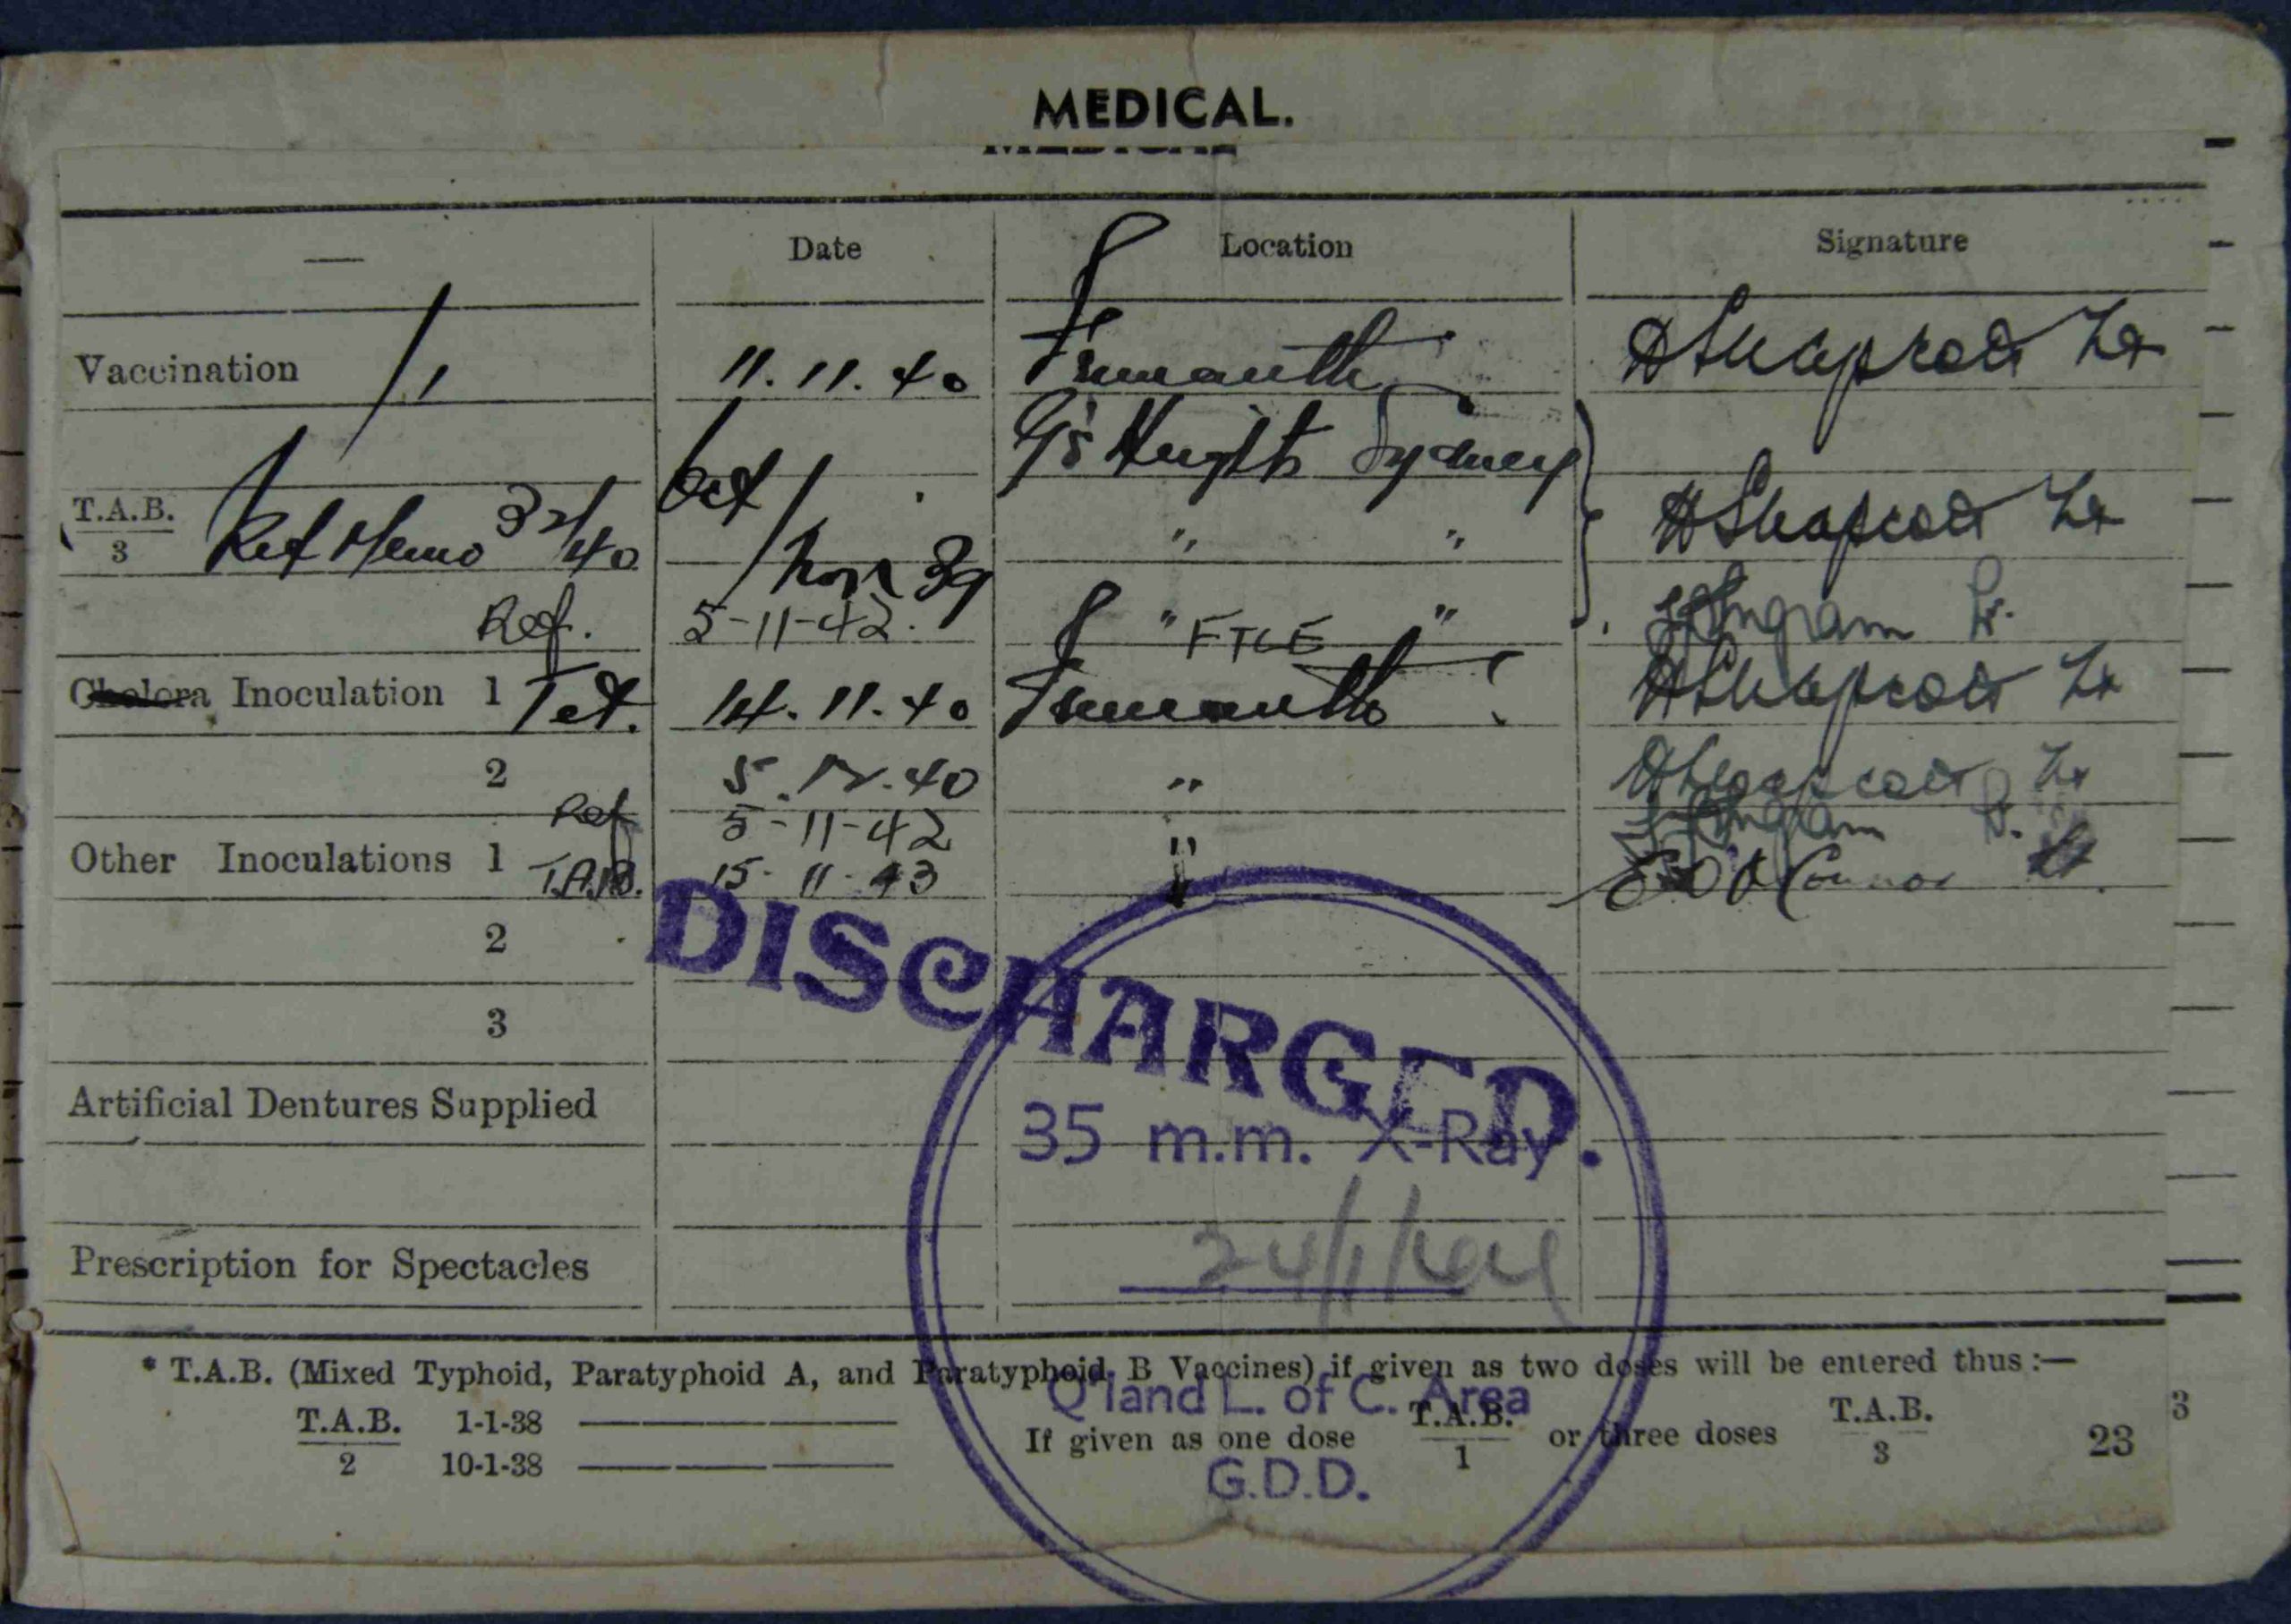 MEDICAL.
— Date Location Signature
Vaccination 11.11.40 Fremantle
G's Heights Sydney
T.A.B. Ref Memo 32/40 Oct/ " "
3
Nov 39
Ref. 5-11-42. " FTLE "
Cholera Inoculation 1 Tet. 14.11.40 Fremantle
2 5.12.40 "
Ref 5-11-42 "
Other Inoculations 1 T.A.B. 15-11-43 " O'Connor
2
DISCHARGED.
3
Artificial Dentures Supplied
35 m.m. X-Ray
Prescription for Spectacles
24/1/44
* T.A.B. (Mixed Typhoid, Paratyphoid A, and Paratyphoid B Vaccines) if given as two doses will be entered thus:—
Q'land L. of C. Area
T.A.B. 1-1-38
2 10-1-38
If given as one dose T.A.B. or three doses T.A.B. 23 3
1 3
G.D.D.